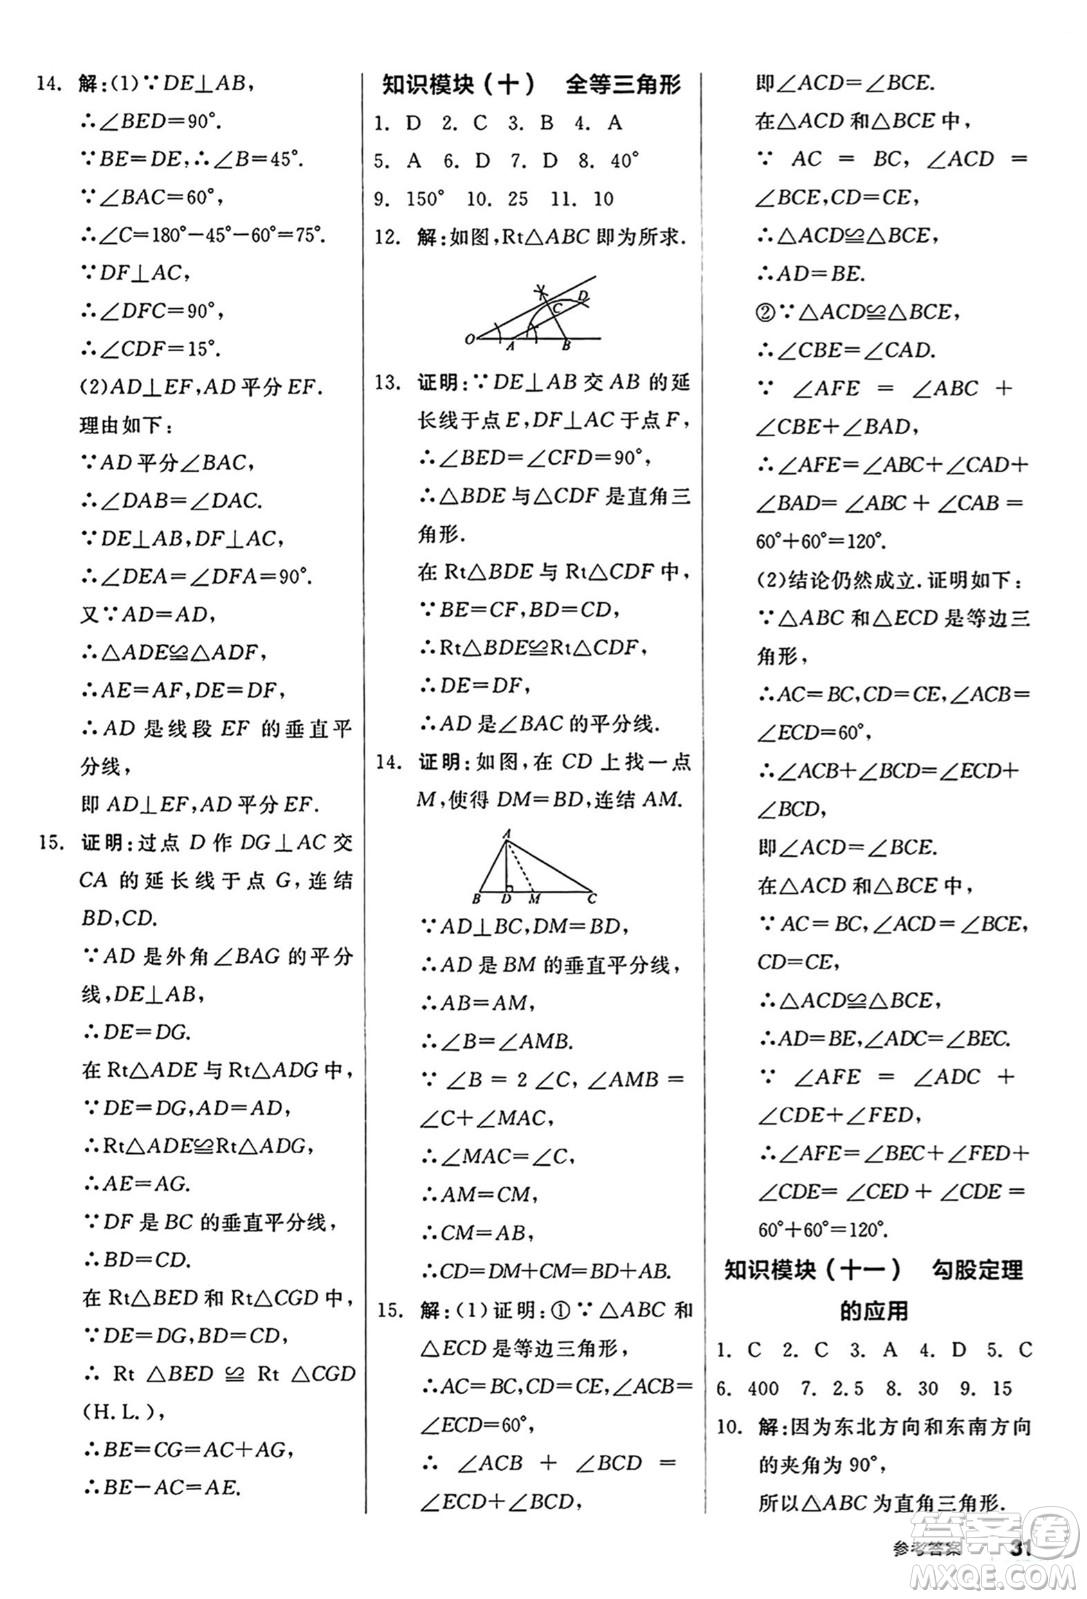 14. 解:(1)∵DE⊥AB,
∴∠BED=90°.
∵BE=DE,∴∠B=45°.
∵∠BAC=60°,
∴∠C=180°-45°-60°=75°.
∵DF⊥AC,
∴∠DFC=90°,
∴∠CDF=15°.
(2)AD⊥EF,AD平分EF.
理由如下:
∵AD平分∠BAC,
∴∠DAB=∠DAC.
∵DE⊥AB,DF⊥AC,
∴∠DEA=∠DFA=90°.
又∵AD=AD,
∴△ADE≌△ADF,
∴AE=AF,DE=DF,
∴AD是线段EF的垂直平
分线,
即AD⊥EF,AD平分EF.
15. 证明:过点D作DG⊥AC交
CA的延长线于点G,连结
BD,CD.
∵AD是外角∠BAG的平分
线,DE⊥AB,
∴DE=DG.
在Rt△ADE与Rt△ADG中,
∵DE=DG,AD=AD,
∴Rt△ADE≌Rt△ADG,
∴AE=AG.
∵DF是BC的垂直平分线,
∴BD=CD.
在Rt△BED和Rt△CGD中,
∵DE=DG,BD=CD,
∴ Rt △BED ≌ Rt △CGD
(H.L.),
∴BE=CG=AC+AG,
∴BE-AC=AE.
知识模块(十) 全等三角形
1. D 2. C 3. B 4. A
5. A 6. D 7. D 8. 40°
9. 150° 10. 25 11. 10
12. 解:如图,Rt△ABC即为所求.
C D
O A B
13. 证明:∵DE⊥AB交AB的延
长线于点E,DF⊥AC于点F,
∴∠BED=∠CFD=90°,
∴△BDE与△CDF是直角三
角形.
在Rt△BDE与Rt△CDF中,
∵BE=CF,BD=CD,
∴Rt△BDE≌Rt△CDF,
∴DE=DF,
∴AD是∠BAC的平分线.
14. 证明:如图,在CD上找一点
M,使得DM=BD,连结AM.
A
B D M C
∵AD⊥BC,DM=BD,
∴AD是BM的垂直平分线,
∴AB=AM,
∴∠B=∠AMB.
∵ ∠B = 2 ∠C, ∠AMB=
∠C+∠MAC,
∴∠MAC=∠C,
∴AM=CM,
∴CM=AB,
∴CD=DM+CM=BD+AB.
15. 解:(1)证明:①∵△ABC和
△ECD是等边三角形,
∴AC=BC,CD=CE,∠ACB=
∠ECD=60°,
∴ ∠ACB + ∠BCD =
∠ECD+∠BCD,
即∠ACD=∠BCE.
在△ACD和△BCE中,
∵ AC = BC, ∠ACD =
∠BCE,CD=CE,
∴△ACD≌△BCE,
∴AD=BE.
②∵△ACD≌△BCE,
∴∠CBE=∠CAD.
∵ ∠AFE = ∠ABC +
∠CBE+∠BAD,
∴∠AFE=∠ABC+∠CAD+
∠BAD=∠ABC+∠CAB=
60°+60°=120°.
(2)结论仍然成立.证明如下:
∵△ABC和△ECD是等边三
角形,
∴AC=BC,CD=CE,∠ACB=
∠ECD=60°,
∴∠ACB+∠BCD=∠ECD+
∠BCD,
即∠ACD=∠BCE.
在△ACD和△BCE中,
∵AC=BC,∠ACD=∠BCE,
CD=CE,
∴△ACD≌△BCE,
∴AD=BE,∠ADC=∠BEC.
∵ ∠AFE = ∠ADC +
∠CDE+∠FED,
∴∠AFE=∠BEC+∠FED+
∠CDE=∠CED+∠CDE=
60°+60°=120°.
知识模块(十一) 勾股定理
的应用
1. C 2. C 3. A 4. D 5. C
6. 400 7. 2.5 8. 30 9. 15
10. 解:因为东北方向和东南方向
的夹角为90°,
所以△ABC为直角三角形.
参考答案 31
答案圈
MXQE.COM